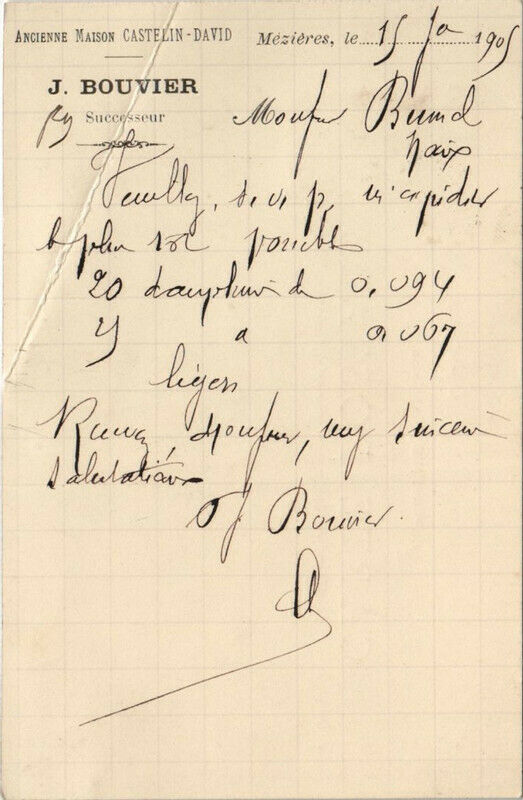 ANCIENNE MAISON CASTELIN-DAVID
Mézières, le 15 Ja 1905
J. BOUVIER
Successeur
Monsieur
Veuillez, s. v. p, m'expédier
le plus tôt possible
20 de 0,094
a 0,067
légers
Recevez, Monsieur, mes sincères
salutations
J Bouvier.